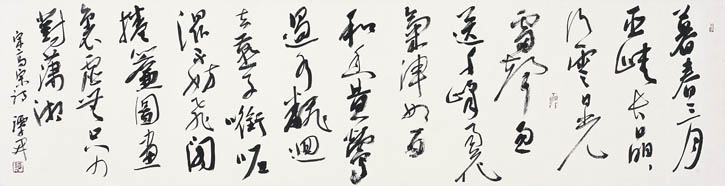 暮春三月
巫峡长晶晶
行雲日光
雷聲忽
送千峰雨花
氣渾如百
和香黄鶯
過水翻迴
去燕子銜泥
濕不妨飛閣
捲簾圖畫
裏虚無只少
對瀟湘